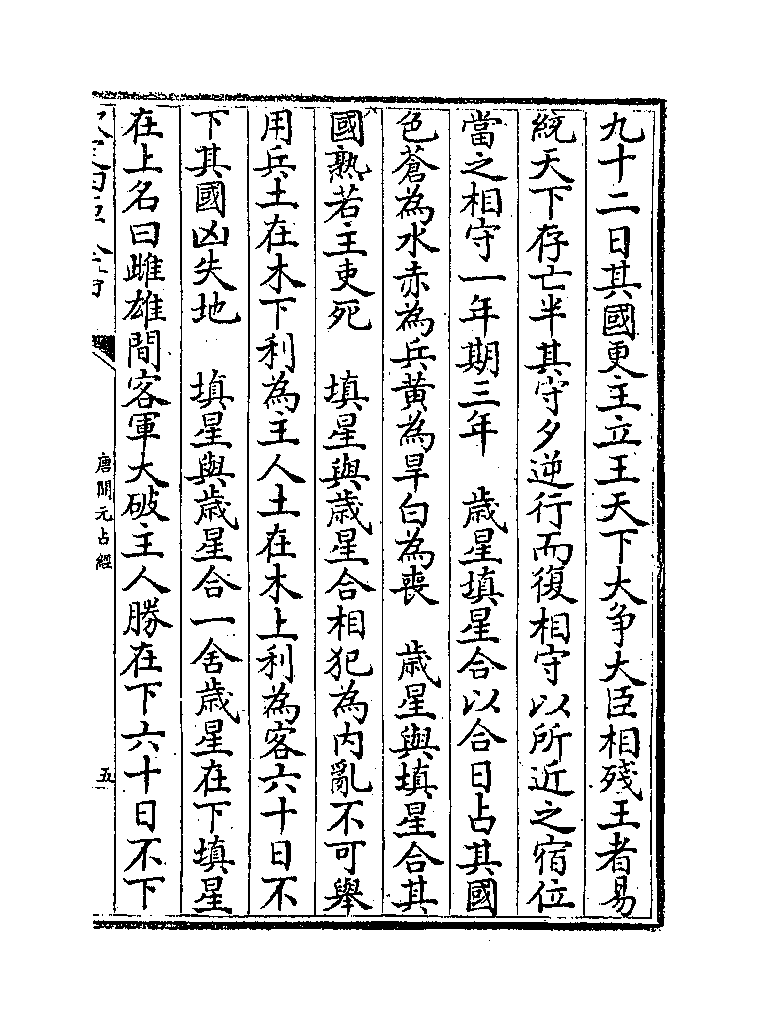 九十二日其國更主立王天下大争大臣相殘王者易
統天下存亡半其守夕逆行而復相守以所近之宿位
當之相守一年期三年　歳星填星合以合日占其國
色蒼為水赤為兵黄為旱白為喪　歳星與填星合其
國熟若主吏死　填星與歳星合相犯為内亂不可舉
用兵土在木下利為主人土在木上利為客六十日不
下其國凶失地　填星與歳星合一舍歳星在下填星
在上名曰雌雄間客軍大破主人勝在下六十日不下
唐開元占經
五